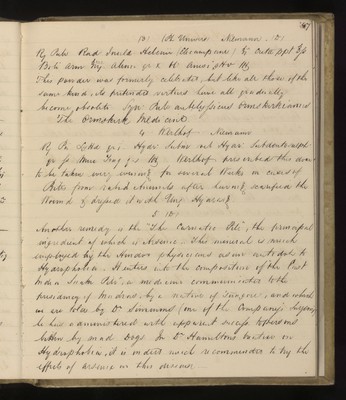 167
Rx Pulv Rad Inula Helenii (Elecampane) Zj Cretæ ppt Zjß
Boli Arm Ziij Alumin gr x Ol Anisi gtt v M
This powder was formerly celebrated, but like all those of the
same kind, its pretended virtues have all gradually
become obsolete. Syn Pulv antilyssicus Ormskirkianus
The Ormskirk Medicine
4 Werlhof
Werlhof prescribed this dose
to be taken every evening for several Weeks in cases of
Bites from Rabid Animals after having scarified the
Wound & dressed it with Ung Hydrarg
5
Another remedy is the "The Carnatic Pill", the principal
ingredient of which is Arsenic. This mineral is much
employed by the Hindoo physicians as an antidote to
Hydrophobia. It enters into the composition of the East
India Snake Pill, a medicine communicated to the
presidency of Madras, by a native of Tanjore, and which
we are told by Dr (one of the Company's Surgeons)
he has administered with apparent success to persons
bitten by mad Dogs. In Dr Hamilton's treatise on
Hydrophobia, it is indeed much recommended to try the
effects of arsenic in this disease